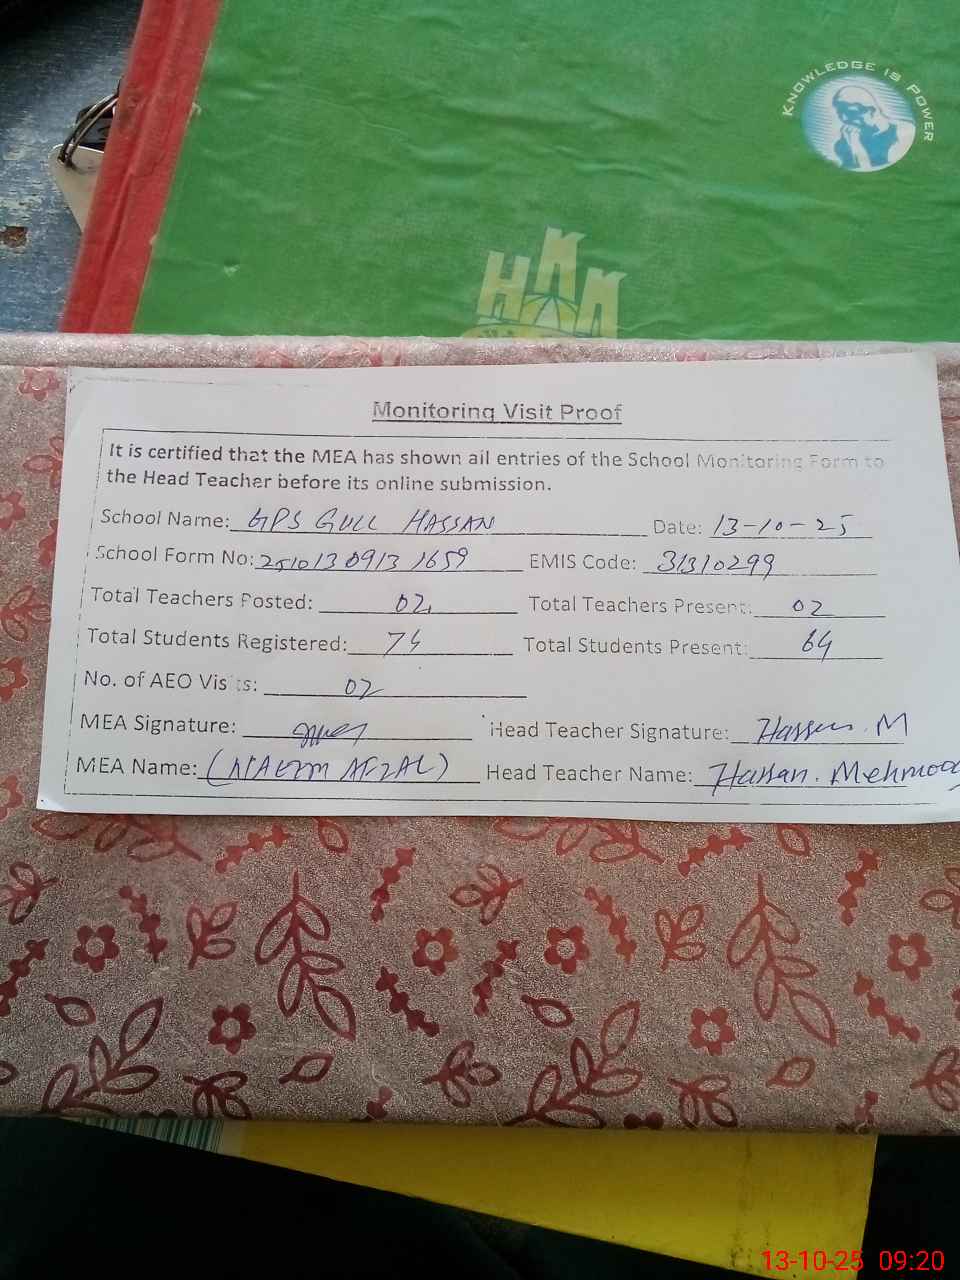 KNOWLEDGE IS POWER
HKN
Monitoring Visit Proof
It is certified that the MEA has shown all entries of the School Monitoring Form to
the Head Teacher before its online submission.
School Name: GPS GULL HASSAN Date: 13-10-25
School Form No: 251013 0913 1659 EMIS Code: 31310299
Total Teachers Posted: 02 Total Teachers Present: 02
Total Students Registered: 74 Total Students Present: 64
No. of AEO Visits: 02
MEA Signature: Head Teacher Signature: Hassan. M
MEA Name: (NAEEM AFZAL) Head Teacher Name: Hassan. Mehmood
13-10-25 09:20